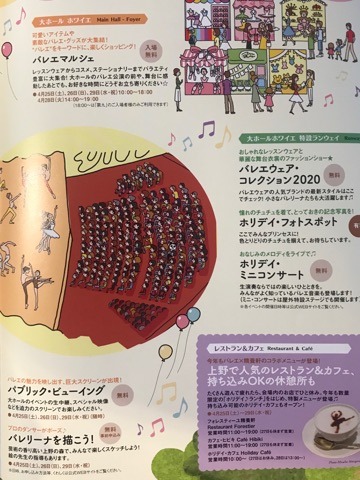 大ホール ホワイエ Main Hall - Foyer
可愛いアイテムや
素敵なバレエ・グッズが大集結！
"バレエ"をキーワードに、楽しくショッピング！
バレエマルシェ
入場
無料
レッスンウェアからコスメ、ステーショナリーまでバラエティ
豊富に大集合！大ホールのバレエ公演の前や、舞台に感
動したあとでも、お好きな時間にどうぞお立ち寄りください☆
●4月25日(土)、26日(日)、29日(水・祝)10:00～18:00
4月28日(火)14:00～19:00
大ホールホワイエ 特設ランウェイ
おしゃれなレッスンウェアと
華麗な舞台衣裳のファッションショー★
バレエウェア・
コレクション2020
無料
バレエウェアの人気ブランドの最新スタイルはここ
でチェック！小さなバレリーナたちも大活躍します♫
憧れのチュチュを着て、とっておきの記念写真を！
ホリデイ・フォトスポット
ここでみんなプリンセスに！
色とりどりのチュチュを揃えて、お待ちしています。
おなじみのメロディをライブで♫
ホリデイ・
ミニコンサート
無料
生演奏ならではの楽しいひとときを。
みんながよく知っているバレエ音楽も登場します！
(ミニ・コンサートは屋外特設ステージでも開催します)
レストラン&カフェ Restaurant & Café
今年もバレエ×精養軒のコラボメニューが登場！
上野で人気のレストラン&カフェ、
持ち込みOKの休憩所も
たくさん遊んで疲れたら、会場内のお店でひと休み。今年も数量
限定の「ホリデイランチ」をはじめ、特製メニューが登場！
持ち込み可能のホリデイ・カフェもオープン！
●4月25日(土)～29日(水・祝)
フォレスティーユ精養軒
Restaurant Forestier
カフェ・ヒビキ Café Hibiki
ホリデイ・カフェ Holiday Café
バレエの魅力を映し出す、巨大スクリーンが出現！
パブリック・ビューイング
無料
大ホールのイベントの生中継、スペシャル映像
などを迫力のスクリーンでお楽しみください。
●4月25日(土)、26日(日)、29日(水・祝)
プロのダンサーがポーズ♪
バレリーナを描こう！
無料
芸術の香り高い上野の森で、みんなで楽しくスケッチしよう！
絵の先生の指導もあります。
●4月25日(土)、26日(日)、29日(水・祝)